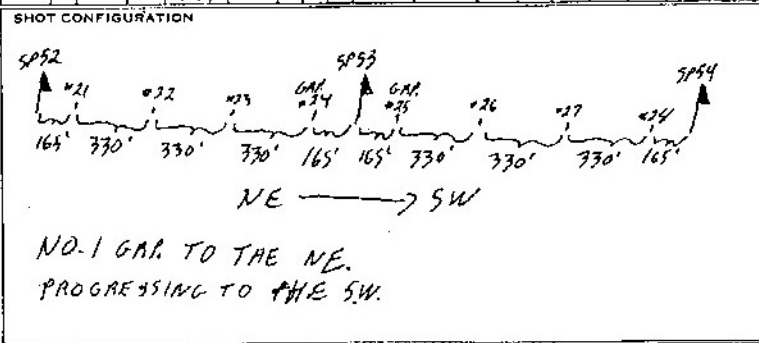 SHOT CONFIGURATION
SP52 SP53 SP54
GAP. GAP.
#21 #22 #23 #24 #25 #26 #27 #24
165' 330' 330' 330' 165' 165' 330' 330' 330' 165'
NE SW
NO. 1 GAP. TO THE NE.
PROGRESSING TO THE SW.